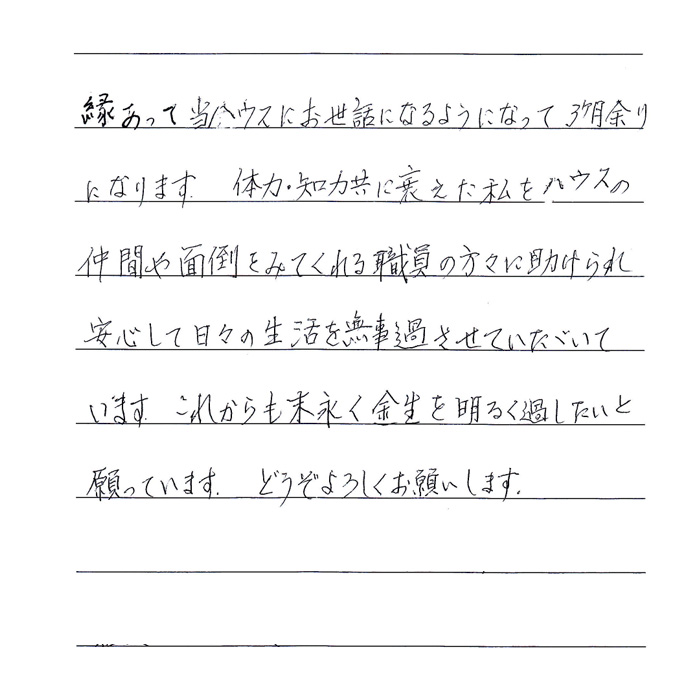 縁あって当ハウスにお世話になるようになって3ケ月余り
になります. 体力・知力共に衰えた私をハウスの
仲間や面倒をみてくれる職員の方々に助けられ
安心して日々の生活を無事過させていただいて
います. これからも末永く余生を明るく過したいと
願っています. どうぞよろしくお願いします.